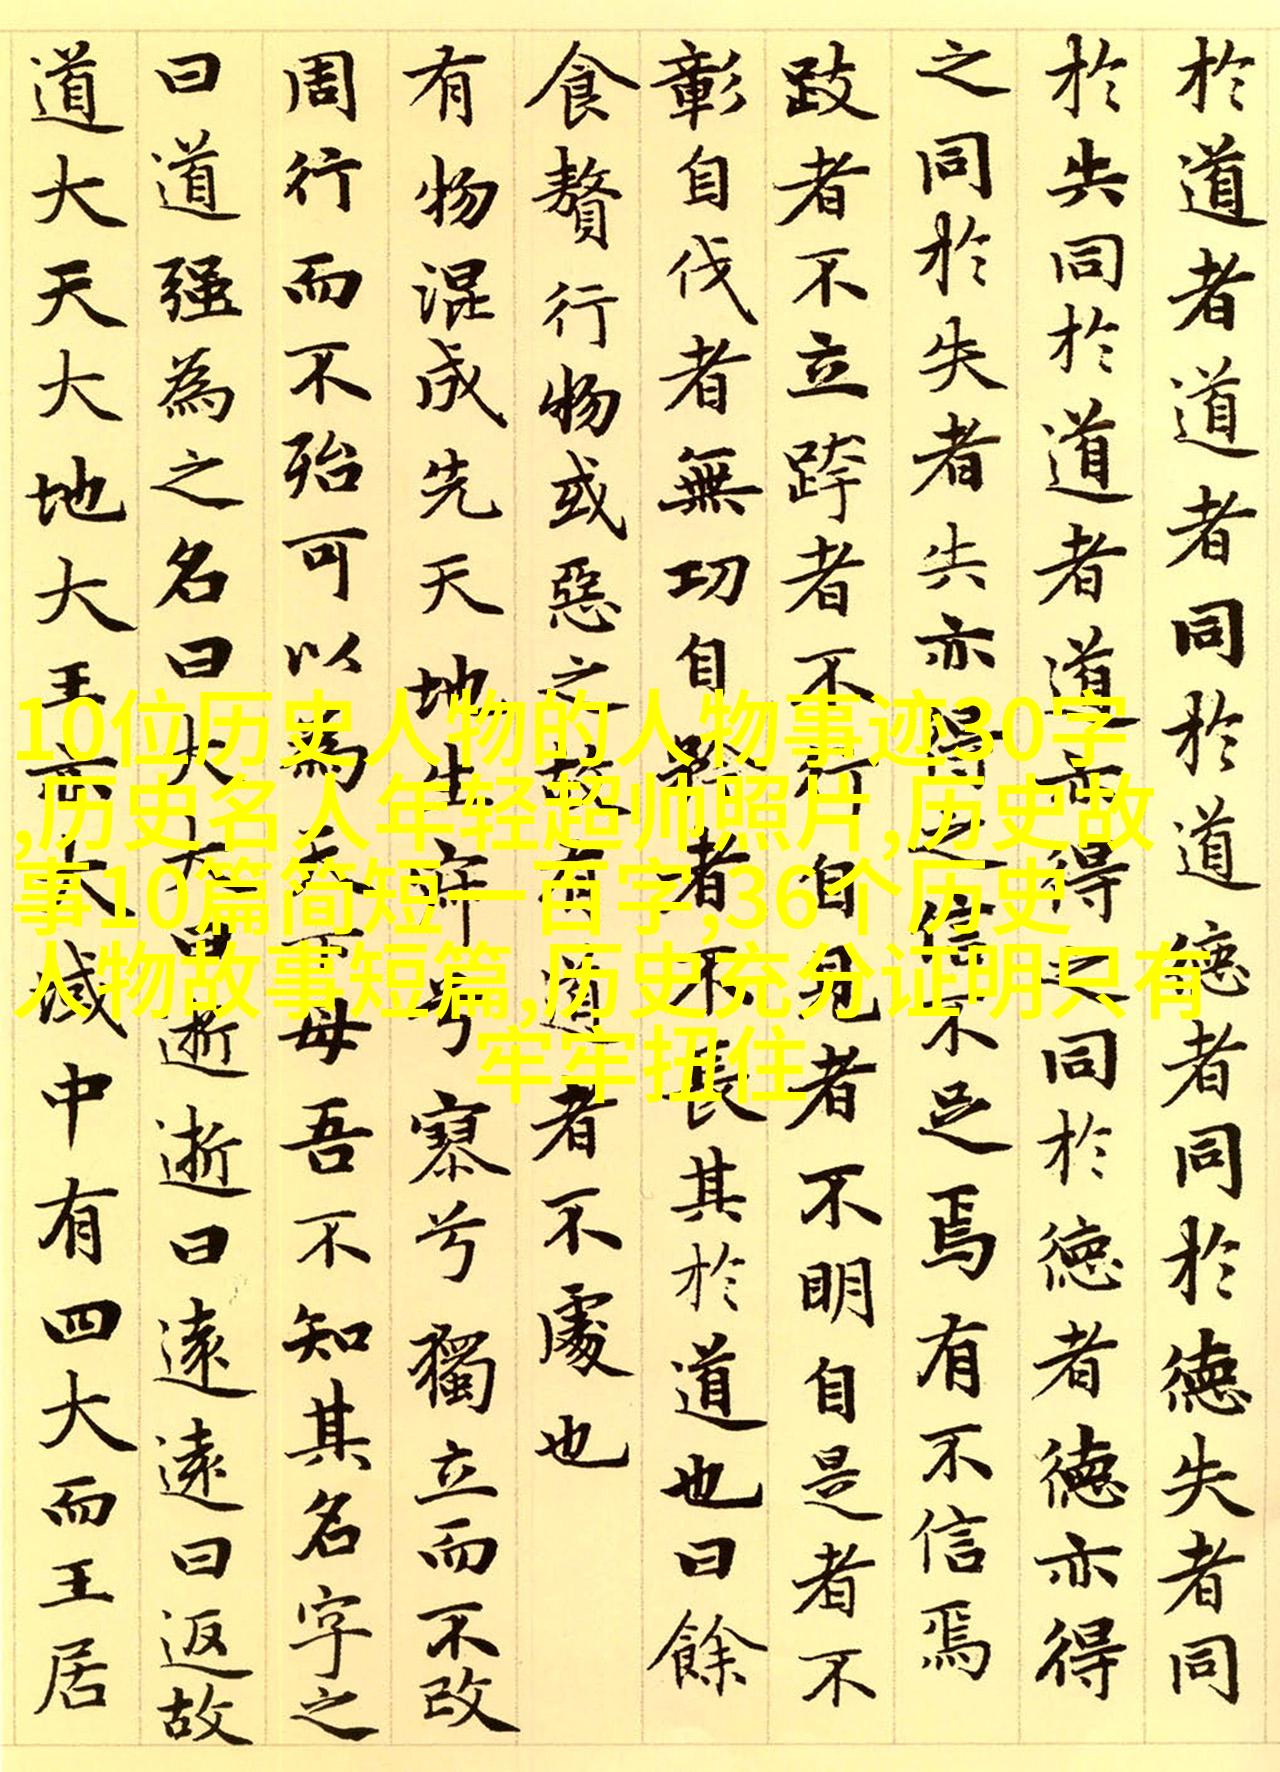 於道者道者同於道德者同於德失者同
於失同於道者道亦得之同於德者德亦得
之同於失者失亦得之信不足焉有不信焉
跂者不立跨者不行自見者不明自是者不
彰自伐者無功自矜者不長其於道也曰餘
食贅行物或惡之故有道者不處也
有物混成先天地生寂兮寥兮獨立而不改
周行而不殆可以為天下母吾不知其名字之
曰道强為之名曰大大曰逝逝曰遠遠曰返故
道大天大地大王亦大域中有四大而王居
10位历史人物的人物事迹30字
,历史名人年轻超帅照片,历史故
事10篇简短一百字,36个历史
人物故事短篇,历史充分证明只有
牢牢扭住